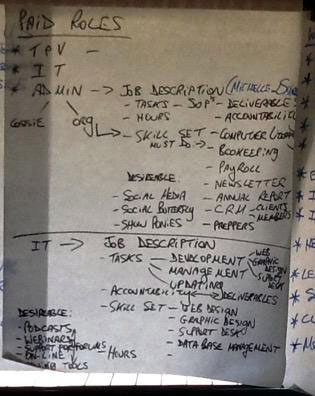 PAID ROLES
* TPV -
* IT
* ADMIN -> JOB DESCRIPTION (MICHELLE
- TASKS - SOP's - DELIVERABLES
- HOURS - ACCOUNTABILITY
ORG
- SKILL SET - COMPUTER
MUST DO -> - BOOKEEPING
- PAYROLL
DESIREABLE: - NEWSLETTER
- SOCIAL MEDIA - ANNUAL REPORT
- SOCIAL BUTTERFLY - CRM - CLIENTS
MEMBERS
- SHOW PONIES - PREPPERS
IT -> JOB DESCRIPTION
- TASKS - DEVELOPMENT - WEB
GRAPHIC DESIGN
SUPPORT DESK
MANAGEMENT
UPDATING
- ACCOUNTABILITY - DELIVERABLES
- SKILL SET - WEB DESIGN
- GRAPHIC DESIGN
- SUPPORT DESK
- DATABASE MANAGEMENT
- HOURS -
DESIREABLE:
- PODCASTS
- WEBINARS
- SUPPORT FOR FORUMS
- ON-LINE
TOOLS